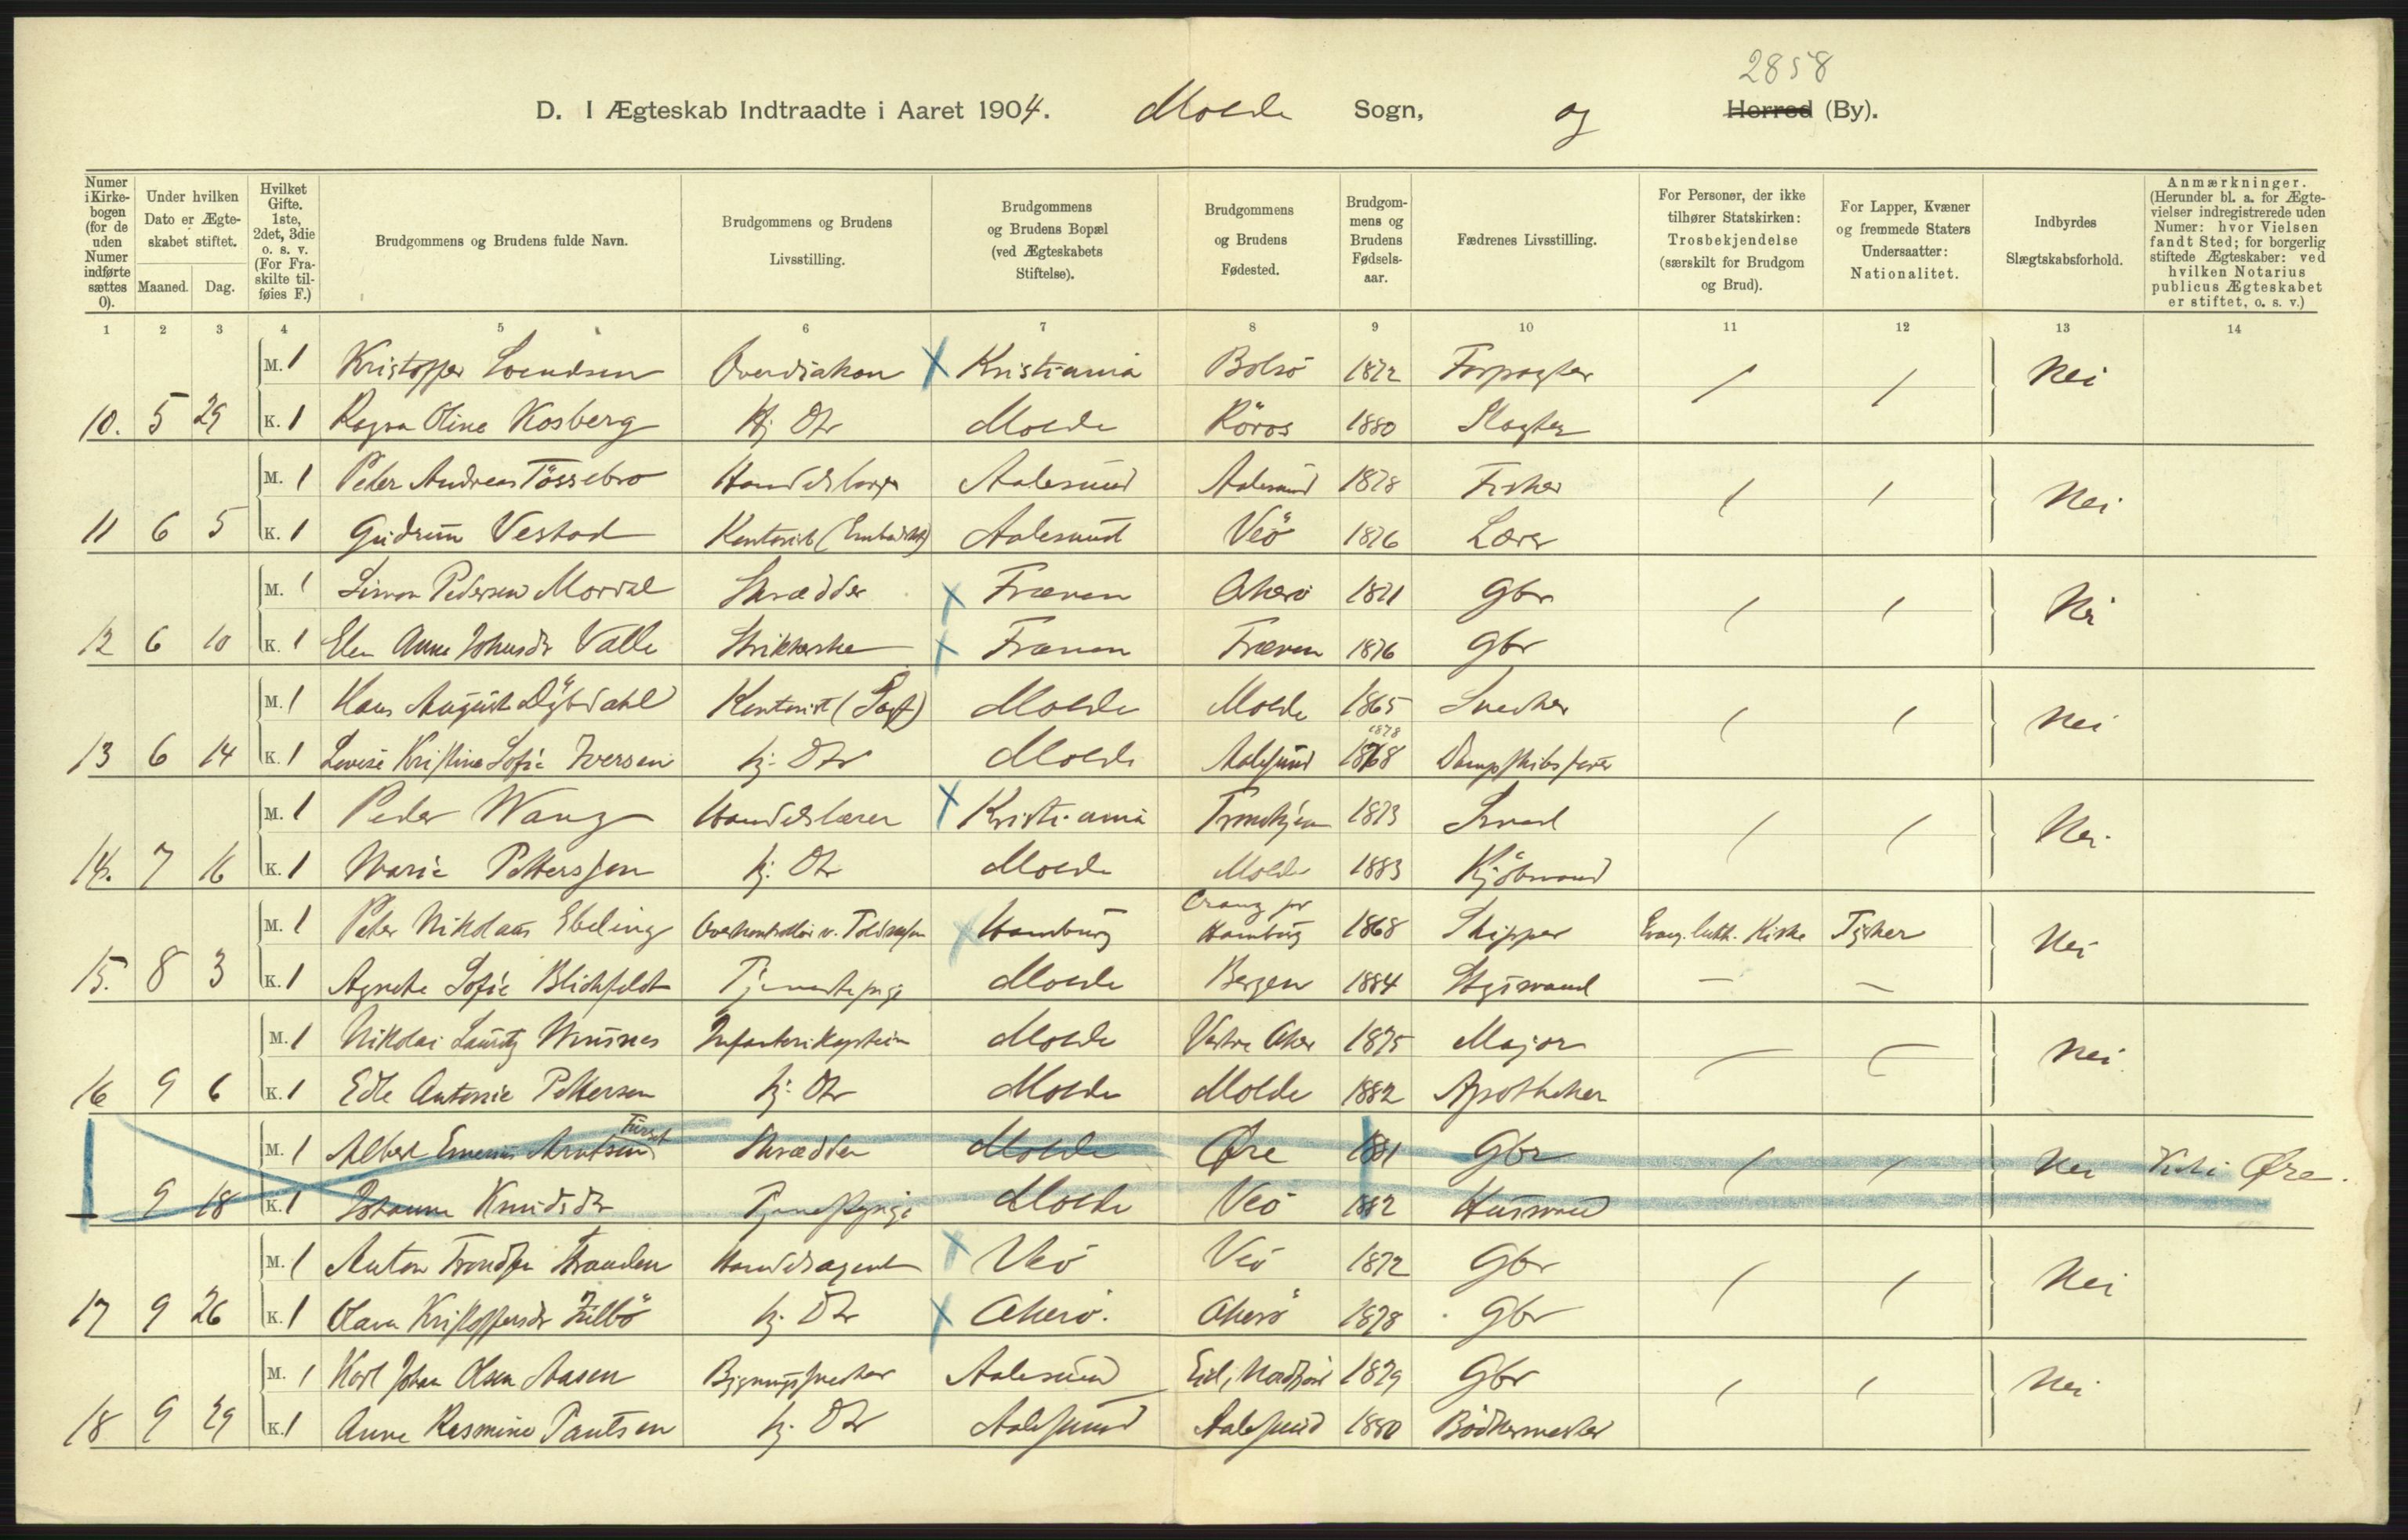 2858
D. I Ægteskab Indtraadte i Aaret 1904. Molde Sogn, og Herred (By).
Numer i Kirkebogen (for de uden Numer indførte sættes 0).
Under hvilken Dato er Ægteskabet stiftet.
Maaned. Dag.
Hvilket Gifte. 1ste, 2det, 3die o. s. v. (For Fraskilte tilføies F.)
Brudgommens og Brudens fulde Navn.
Brudgommens og Brudens Livsstilling.
Brudgommens og Brudens Bopæl (ved Ægteskabets Stiftelse).
Brudgommens og Brudens Fødested.
Brudgommens og Brudens Fødselsaar.
Fædrenes Livsstilling.
For Personer, der ikke tilhører Statskirken: Trosbekjendelse (særskilt for Brudgom og Brud).
For Lapper, Kvæner og fremmede Staters Undersaatter: Nationalitet.
Indbyrdes Slægtskabsforhold.
Anmærkninger. (Herunder bl. a. for Ægtevielser indregistrerede uden Numer: hvor Vielsen fandt Sted; for borgerlig stiftede Ægteskaber: ved hvilken Notarius publicus Ægteskabet er stiftet, o. s. v.)
1 2 3 4 5 6 7 8 9 10 11 12 13 14
M. 1 Kristoffer Svendsen Overdiakon X Kristiania Bolsö 1872 Forpagter / / Nei
10. 5 29 K. 1 Ragna Oline Kosberg Hj. Dtr Molde Röros 1880 Slagter
M. 1 Peder Andreas Tössebro Aalesund Aalesund 1878 Fisker / / Nei
11 6 5 K. 1 Gudrun Vestad Kontorist Aalesund Veö 1876 Lærer
M. 1 Simon Pedersen Mordal Skrædder X Frænen Akerö 1871 Gbr / / Nei
12 6 10 K. 1 Elen Anne Johnsdr Valle Strikkerske X Frænen Frænen 1876 Gbr
M. 1 Hans August Dybdahl Kontorist Molde Molde 1865 Snedker / / Nei
13 6 14 K. 1 Lovise Kristine Sofie Iversen hj. Dtr Molde Aalesund 1868 1878 Dampskibsfører
M. 1 Peder Wang Handelslærer X Kristiania Trondhjem 1873 / / Nei
14. 7 16 K. 1 Marie Pettersen hj. Dtr Molde Molde 1883 Kjöbmand
M. 1 Peter Nikolaus Ebeling Overkontrollør v. X Hamburg Cranz pr Hamburg 1868 Skipper Evang. luth. Kirke Tysker Nei
15. 8 3 K. 1 Agnete Sofie Blichfeldt Tjenestepige Molde Bergen 1884 — —
M. 1 Nikolai Lauritz Infanterikaptein Molde Vestre Aker 1875 Major Nei
16 9 6 K. 1 Edle Antonie Pettersen hj. Dtr Molde Molde 1882 Apotheker
M. 1 Albert Arntsen Furset Skrædder Molde Øre 1881 Gbr / / Nei Viet i Øre.
9 18 K. 1 Johanne Knudsdr Tjenestepige Molde Veö 1882 Husmand
M. 1 Anton Trondsen Stranden Handelsagent X Veö Veö 1872 Gbr / / Nei
17 9 26 K. 1 Olava Kristoffersdr Julbö hj. Dtr X Akerö. Akerö 1878 Gbr
M. 1 Karl Johan Olsen Aasen Bygningssnedker Aalesund Eid, Nordfjord 1879 Gbr / / Nei
18 9 29 K. 1 Anne Rasmine Pautsen hj. Dtr Aalesund Aalesund 1880 Bödkermester